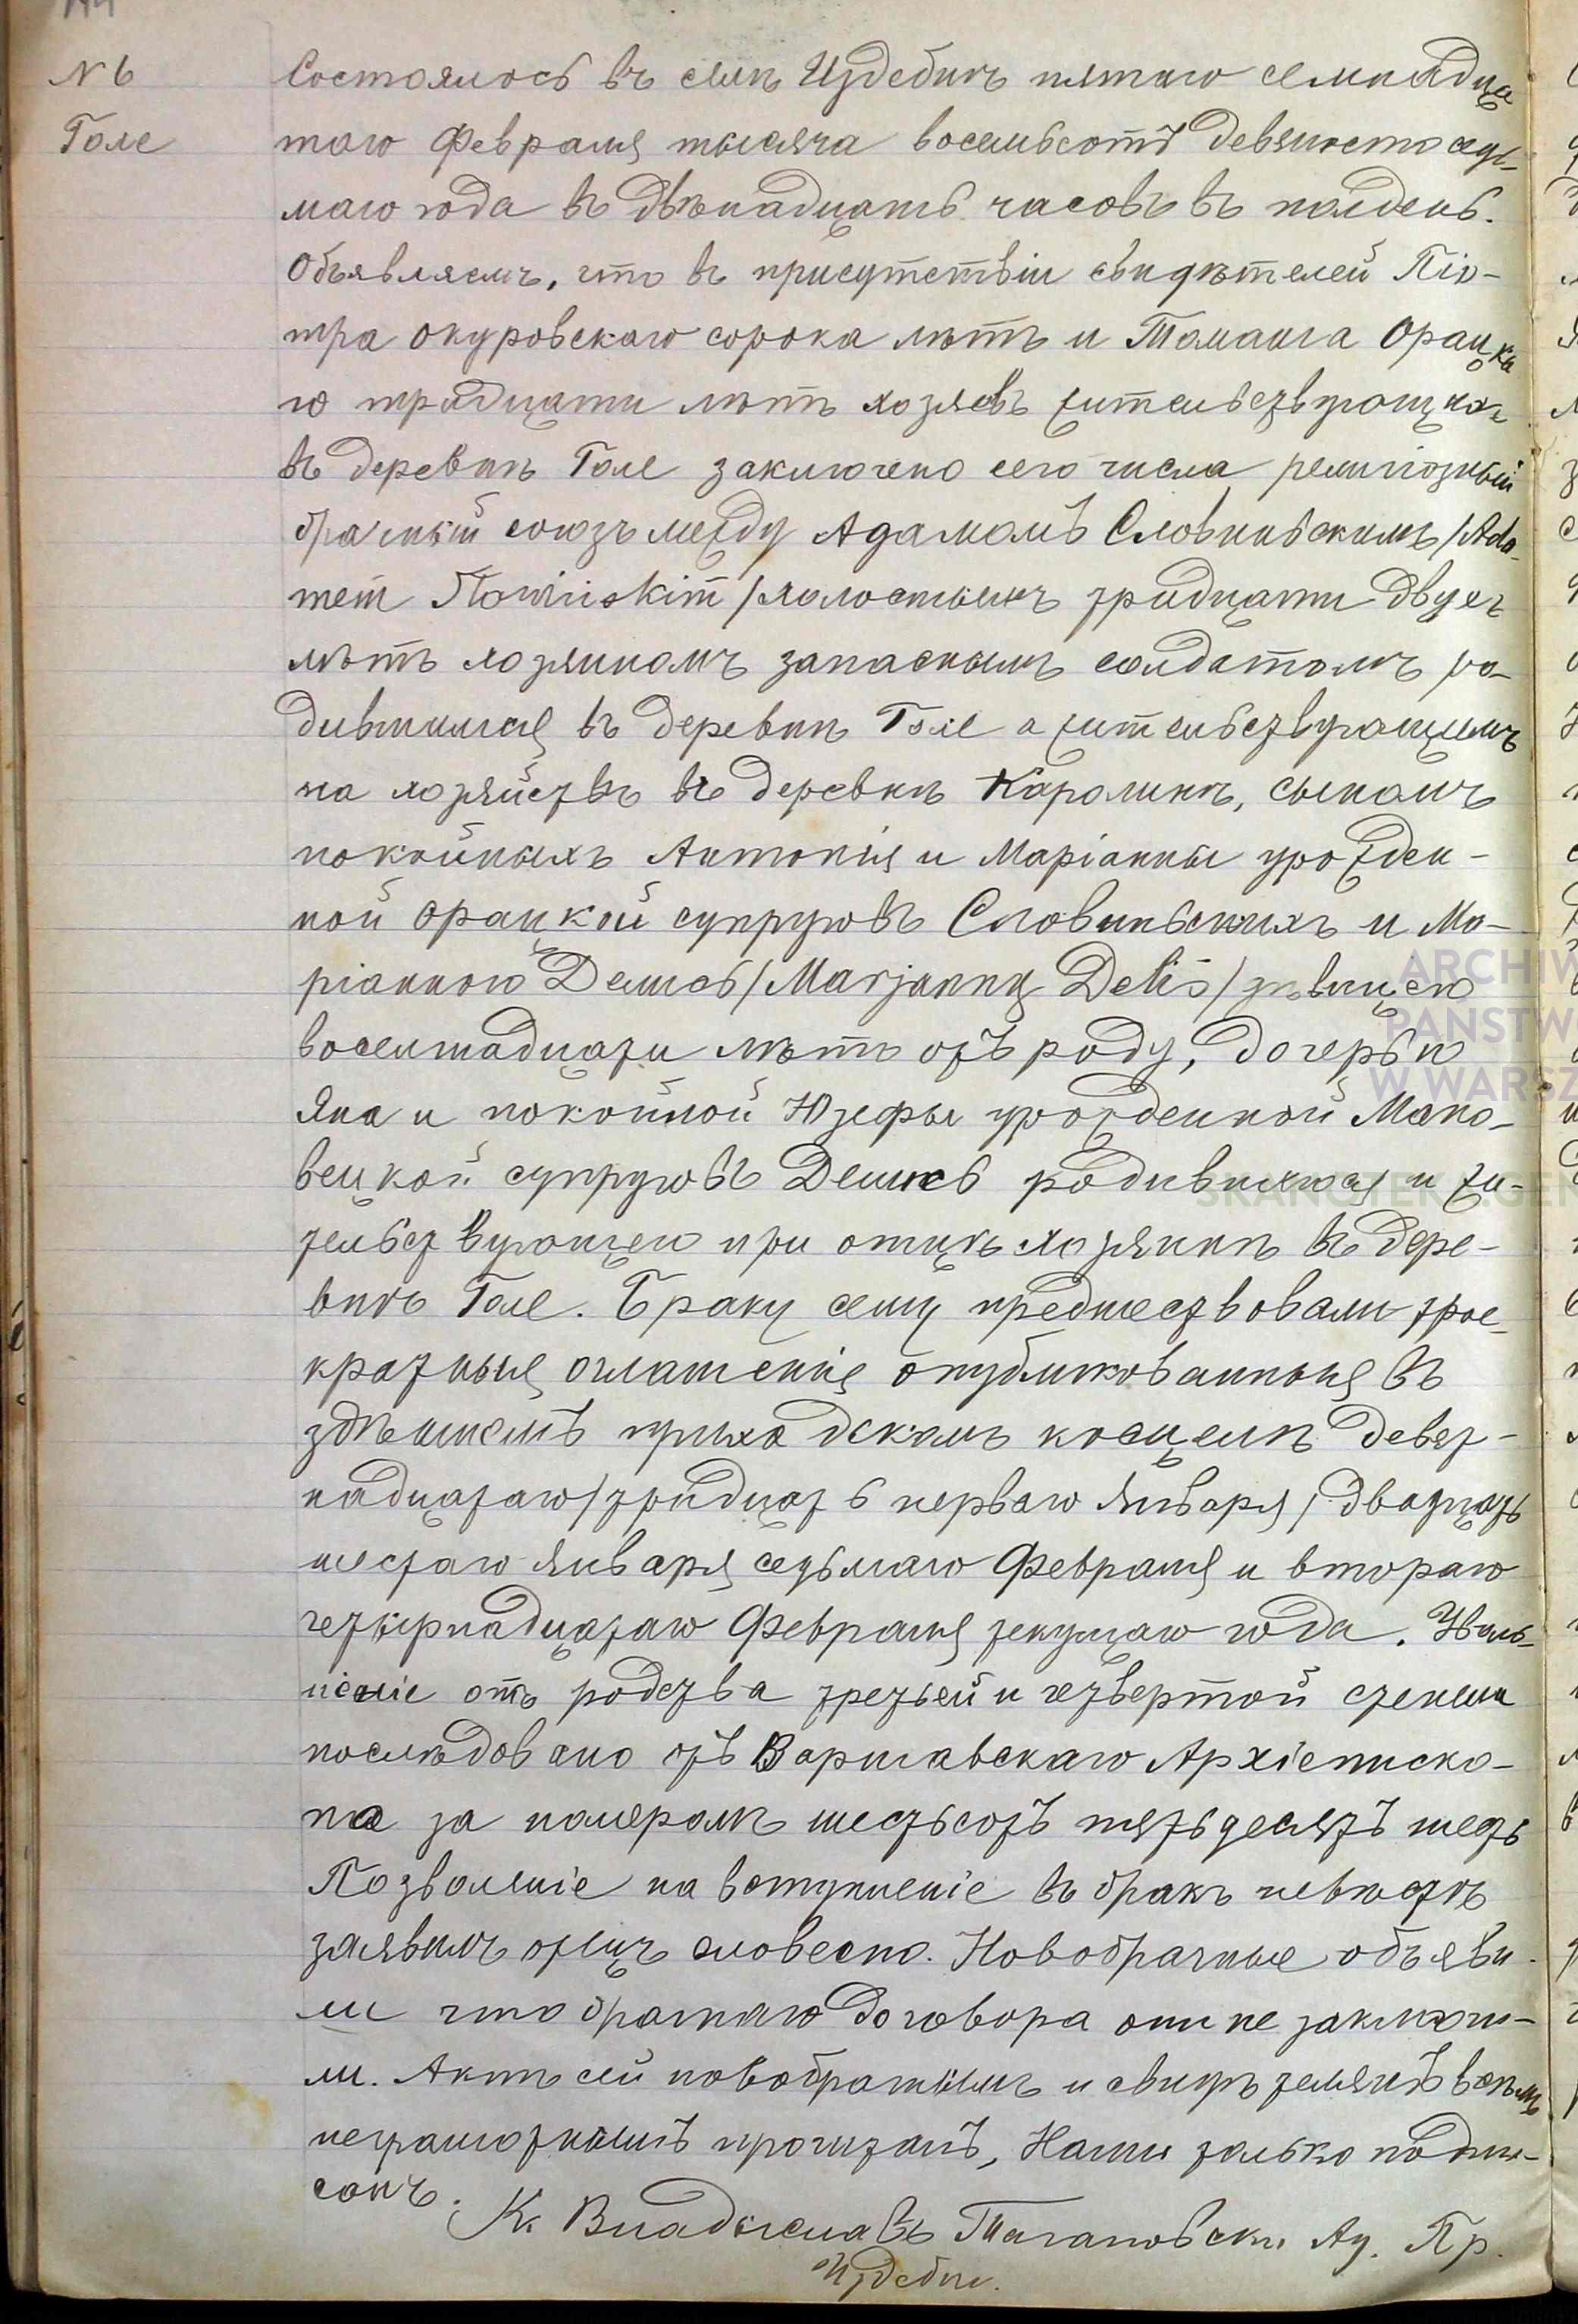 N 6
Голе
Состоялось въ селѣ Издебнѣ пятаго семнадца
таго Февраля тысяча восемьсотъ девяносто седь-
маго года въ двѣнадцать часовъ въ полдень.
Объявляемъ, что въ присутствіи свидѣтелей Піо-
тра Окуровскаго сорока лѣтъ и Томаша Орацка
го тридцати лѣтъ хозяевъ жительствующихъ
въ деревнѣ Голе заключено сего числа религіозный
брачный союзъ между Адамомъ Словиньскимъ /Ada-
mem Słowińskim/ холостымъ тридцати двухъ
лѣтъ хозяиномъ запаснымъ солдатомъ ро-
дившимся въ деревнѣ Голе а жительствующимъ
на хозяйствѣ въ деревнѣ Каролинѣ, сыномъ
покойныхъ Антонія и Маріанны урожден-
ной Орацкой супруговъ Словиньскихъ и Ма-
ріанною Делисъ /Marjanną Deliś/ дѣвицею
восемнадцати лѣтъ отъ роду, дочерью
Яна и покойной Юзефы урожденной Мако-
вецкой супруговъ Делисъ родившеюся и жи-
тельствующею при отцѣ хозяинѣ въ дере-
внѣ Голе. Браку сему предшествовали трое-
кратныя оглашенія опубликованныя въ
здѣшнемъ приходскомъ косцелѣ девят-
надцатаго/тридцать перваго Января/ двадцать
шестаго Января седьмаго Февраля и втораго
четырнадцатаго Февраля текущаго года. Уволь-
неніе отъ родства третьей и четвертой степени
послѣдовано отъ Варшавскаго Архіеписко-
па за номеромъ шестьсотъ пятьдесятъ шесть
Позволеніе на вступленіе въ бракъ невѣстѣ
заявилъ отецъ словесно. Новобрачные объяви-
ли что брачнаго договора они не заключи-
ли. Актъ сей новобрачнымъ и свидѣтелямъ всѣмъ
неграмотнымъ прочитанъ, Нами только подпи-
санъ.
К. Владыславъ Ад. Пр.
Издебн.
ARCHIW
PAŃSTW
W WARSZ